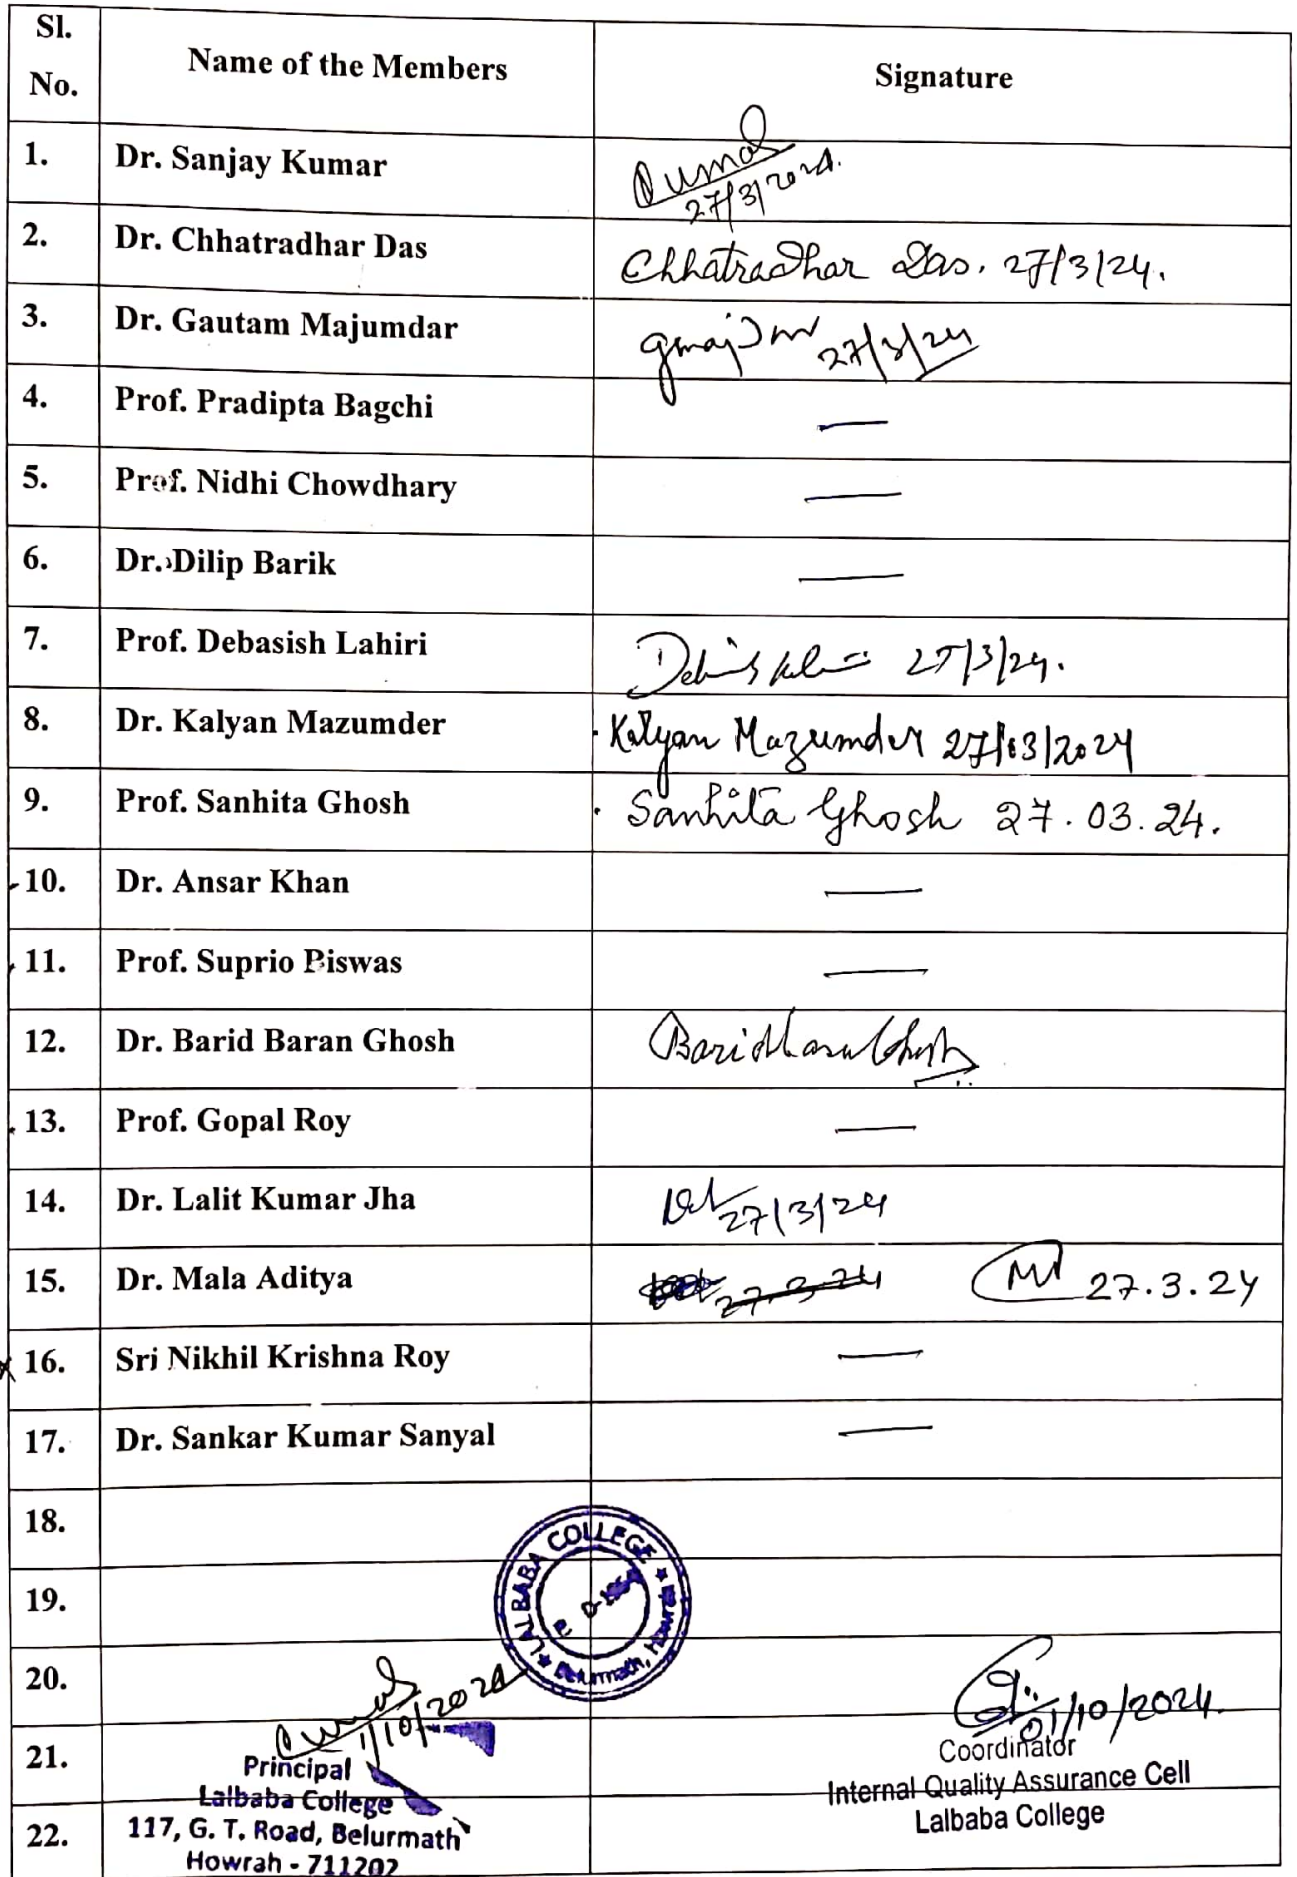 Sl. No. Name of the Members Signature
1. Dr. Sanjay Kumar
27/3/2024.
2. Dr. Chhatradhar Das Chhatradhar Das. 27/3/24.
3. Dr. Gautam Majumdar 27/3/24
4. Prof. Pradipta Bagchi —
5. Prof. Nidhi Chowdhary —
6. Dr. Dilip Barik —
7. Prof. Debasish Lahiri 27/3/24.
8. Dr. Kalyan Mazumder Kalyan Mazumder 27/03/2024
9. Prof. Sanhita Ghosh Sanhita Ghosh 27.03.24.
10. Dr. Ansar Khan —
11. Prof. Suprio Biswas —
12. Dr. Barid Baran Ghosh Barid Baran Ghosh
13. Prof. Gopal Roy —
14. Dr. Lalit Kumar Jha 27/3/24
15. Dr. Mala Aditya 27.3.24 27.3.24
16. Sri Nikhil Krishna Roy —
17. Dr. Sankar Kumar Sanyal —
18.
LALBABA COLLEGE
19.
Belurmath, Howrah
20.
1/10/2024 01/10/2024.
21.
Principal Coordinator
Lalbaba College Internal Quality Assurance Cell
22. 117, G. T. Road, Belurmath Lalbaba College
Howrah - 711202